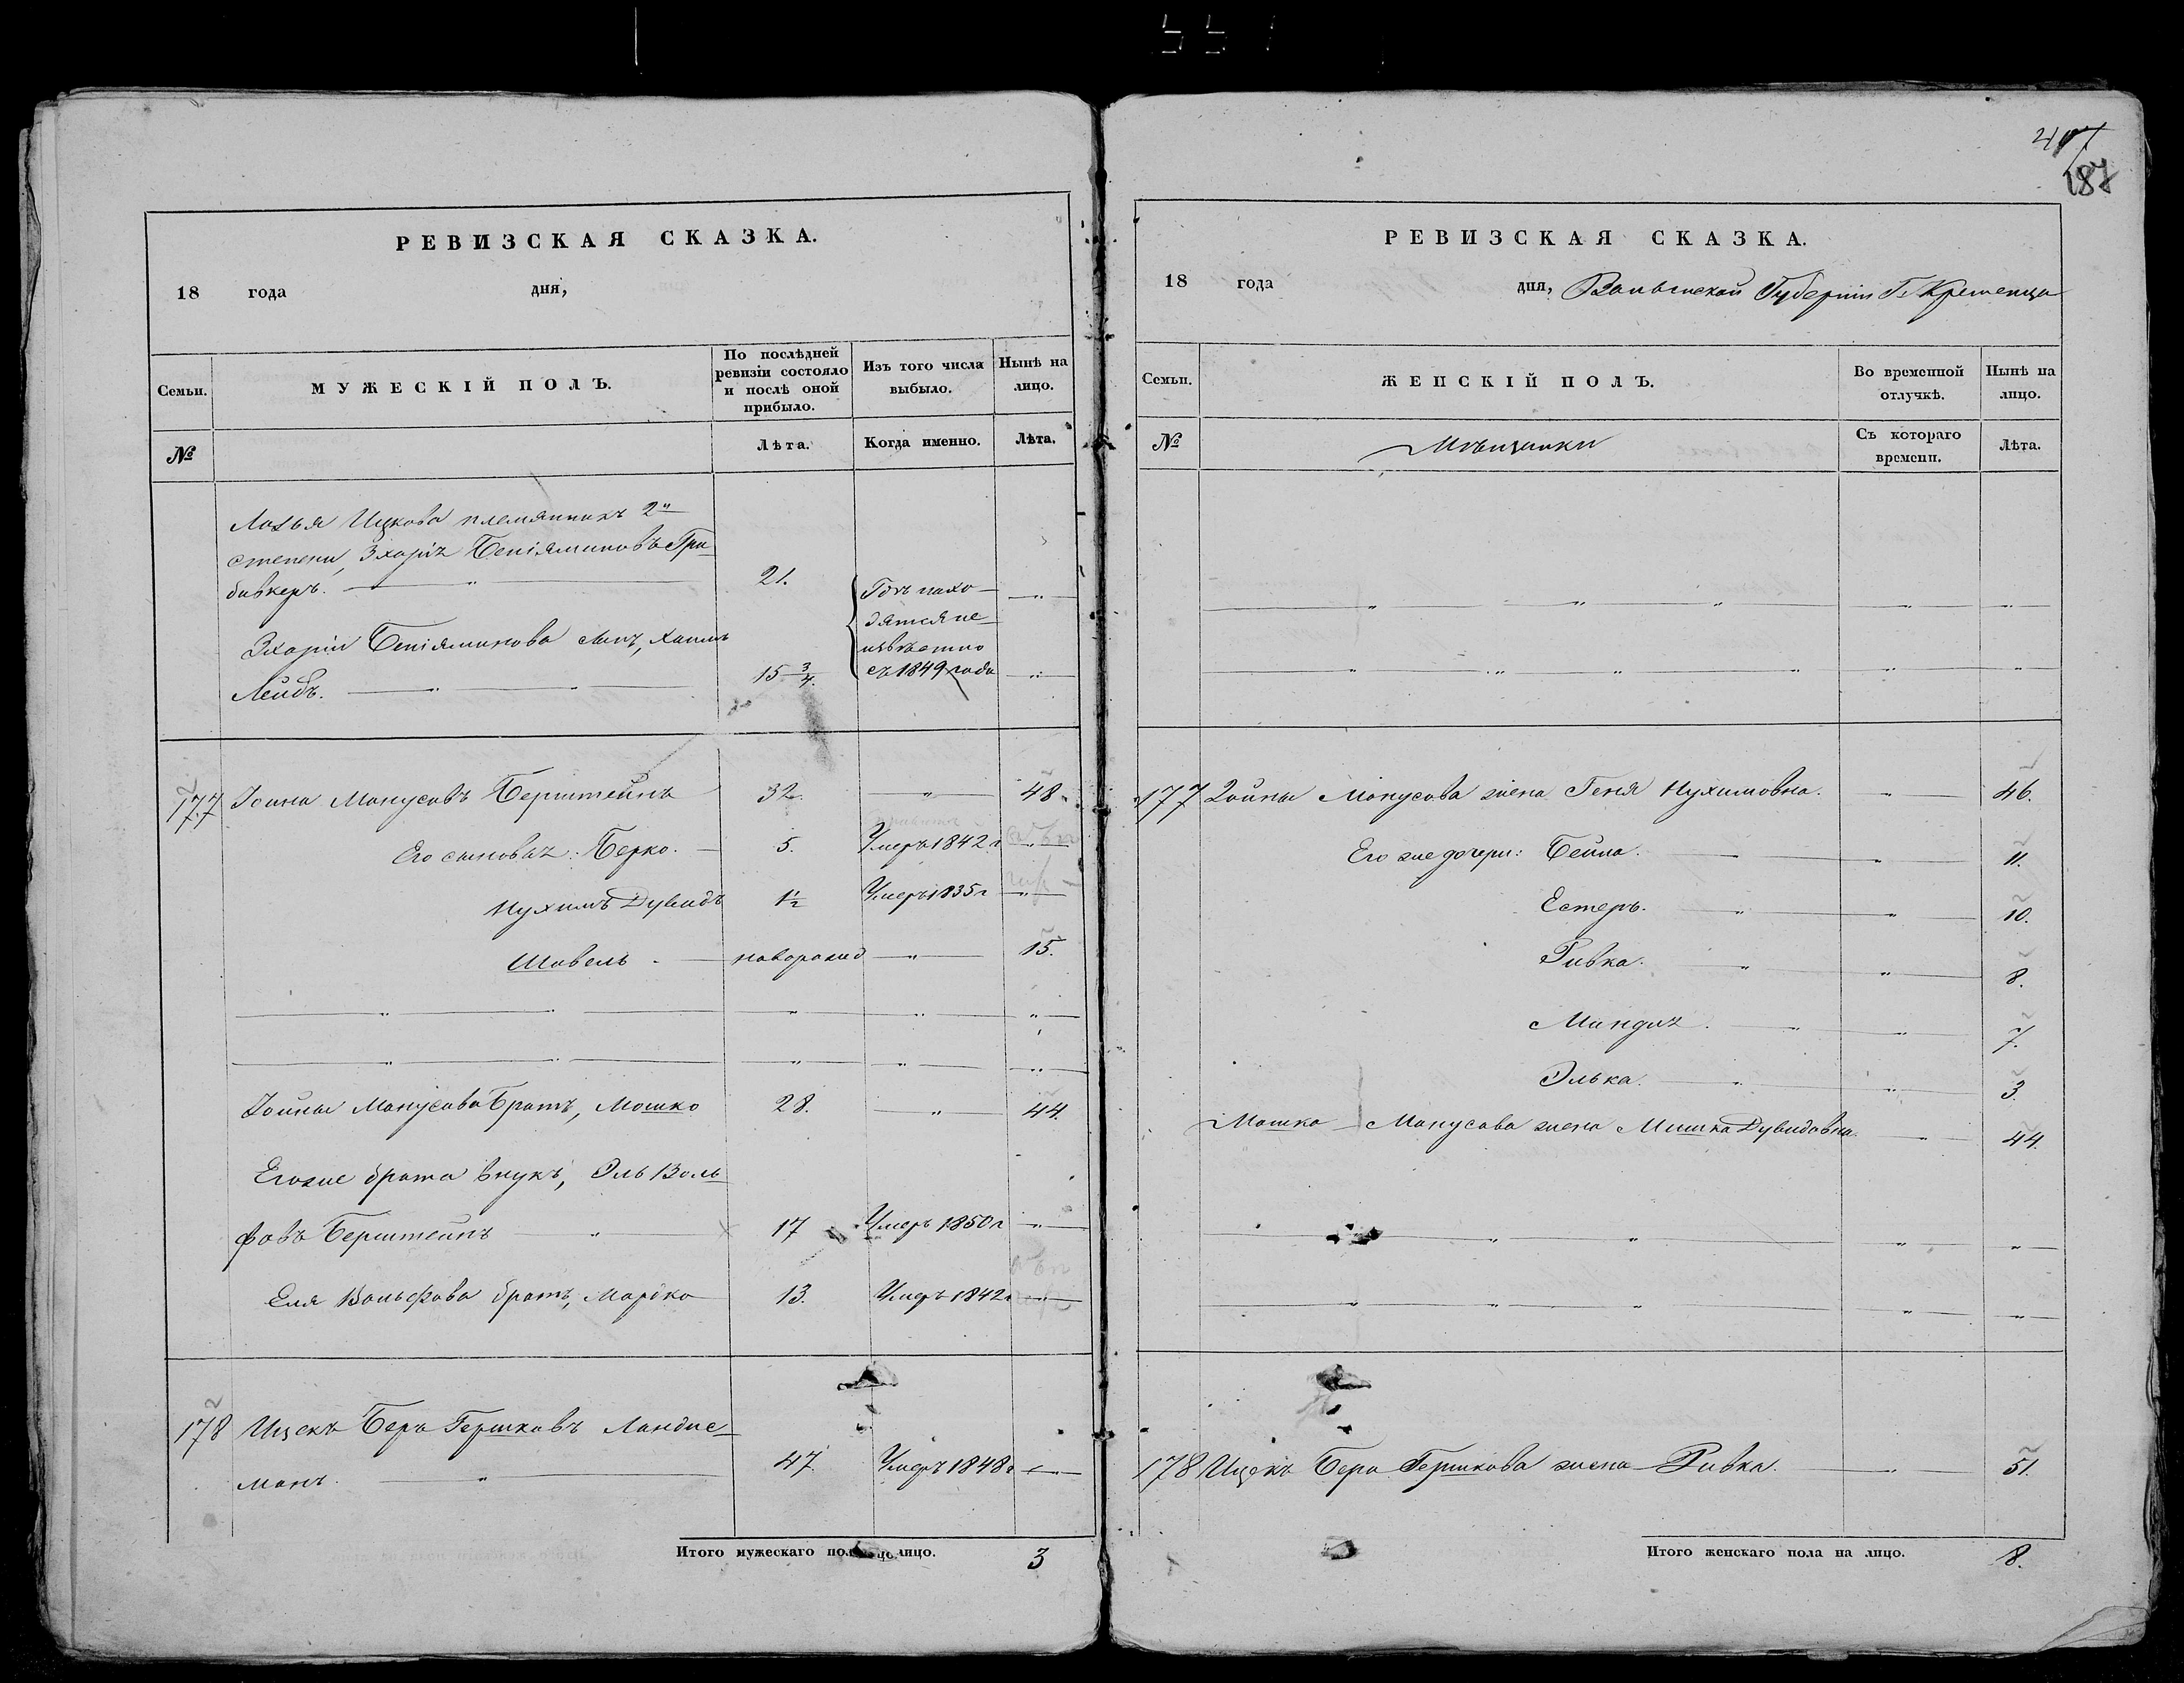 407
187
РЕВИЗСКАЯ СКАЗКА.
18 года дня,
Семьи. МУЖЕСКІЙ ПОЛЪ. По послѣдней ревизіи состояло и послѣ оной прибыло. Изъ того числа выбыло. Нынѣ на лицо.
№ Лѣта. Когда именно. Лѣта.
Ицкова племянникъ 2й
степени, Зхаріъ Беніяминовъ Гри
бивкеръ. — " — 21. Гдѣ нахо — " —
дятся не
Зхаріи Беніяминова сынъ, Хаимъ извѣстно
Лейбъ. — " — " — 15 3/4. съ 1849 года — " —
177 Іойна Манусовъ Берштейнъ 32. — " — 48.
Его сыновья: Берко. — 5. Умеръ 1842 г — " —
Нухимъ Дувидъ 1½ Умеръ 1835 г — " —
Шавель. — наворожд — " — 15.
Іойны Манусова братъ, Мошко 28. — " — 44.
Его же брата внукъ, Эль Воль
фовъ Берштейнъ — " — 17 Умеръ 1850 г — " —
Еля Вольфова братъ, Мордко 13. Умеръ 1842 г — " —
178 Ицекъ Беръ Гершковъ Ландис
манъ. — " — 47. Умеръ 1848 г — " —
Итого мужескаго пола на лицо. 3
РЕВИЗСКАЯ СКАЗКА.
18 года дня, Волынской Губерніи Г. Кременца
Семьи. ЖЕНСКІЙ ПОЛЪ. Во временной отлучкѣ. Нынѣ на лицо.
№ Мѣщанки Съ котораго времени. Лѣта.
177 Іойны Манусова жена Геня Нухимовна. — " — 46.
Его же дочери: Бейла. — " — 11.
Естеръ. — " — " — 10.
Ривка. — " — " — 8.
Миндля. — " — " — 7.
Элька. — " — " — 3.
Мошка Манусова жена Мишка Дувидовна. — " — 44.
178 Ицекъ Бера Гершкова жена Ривка. — " — 51.
Итого женскаго пола на лицо. 8.